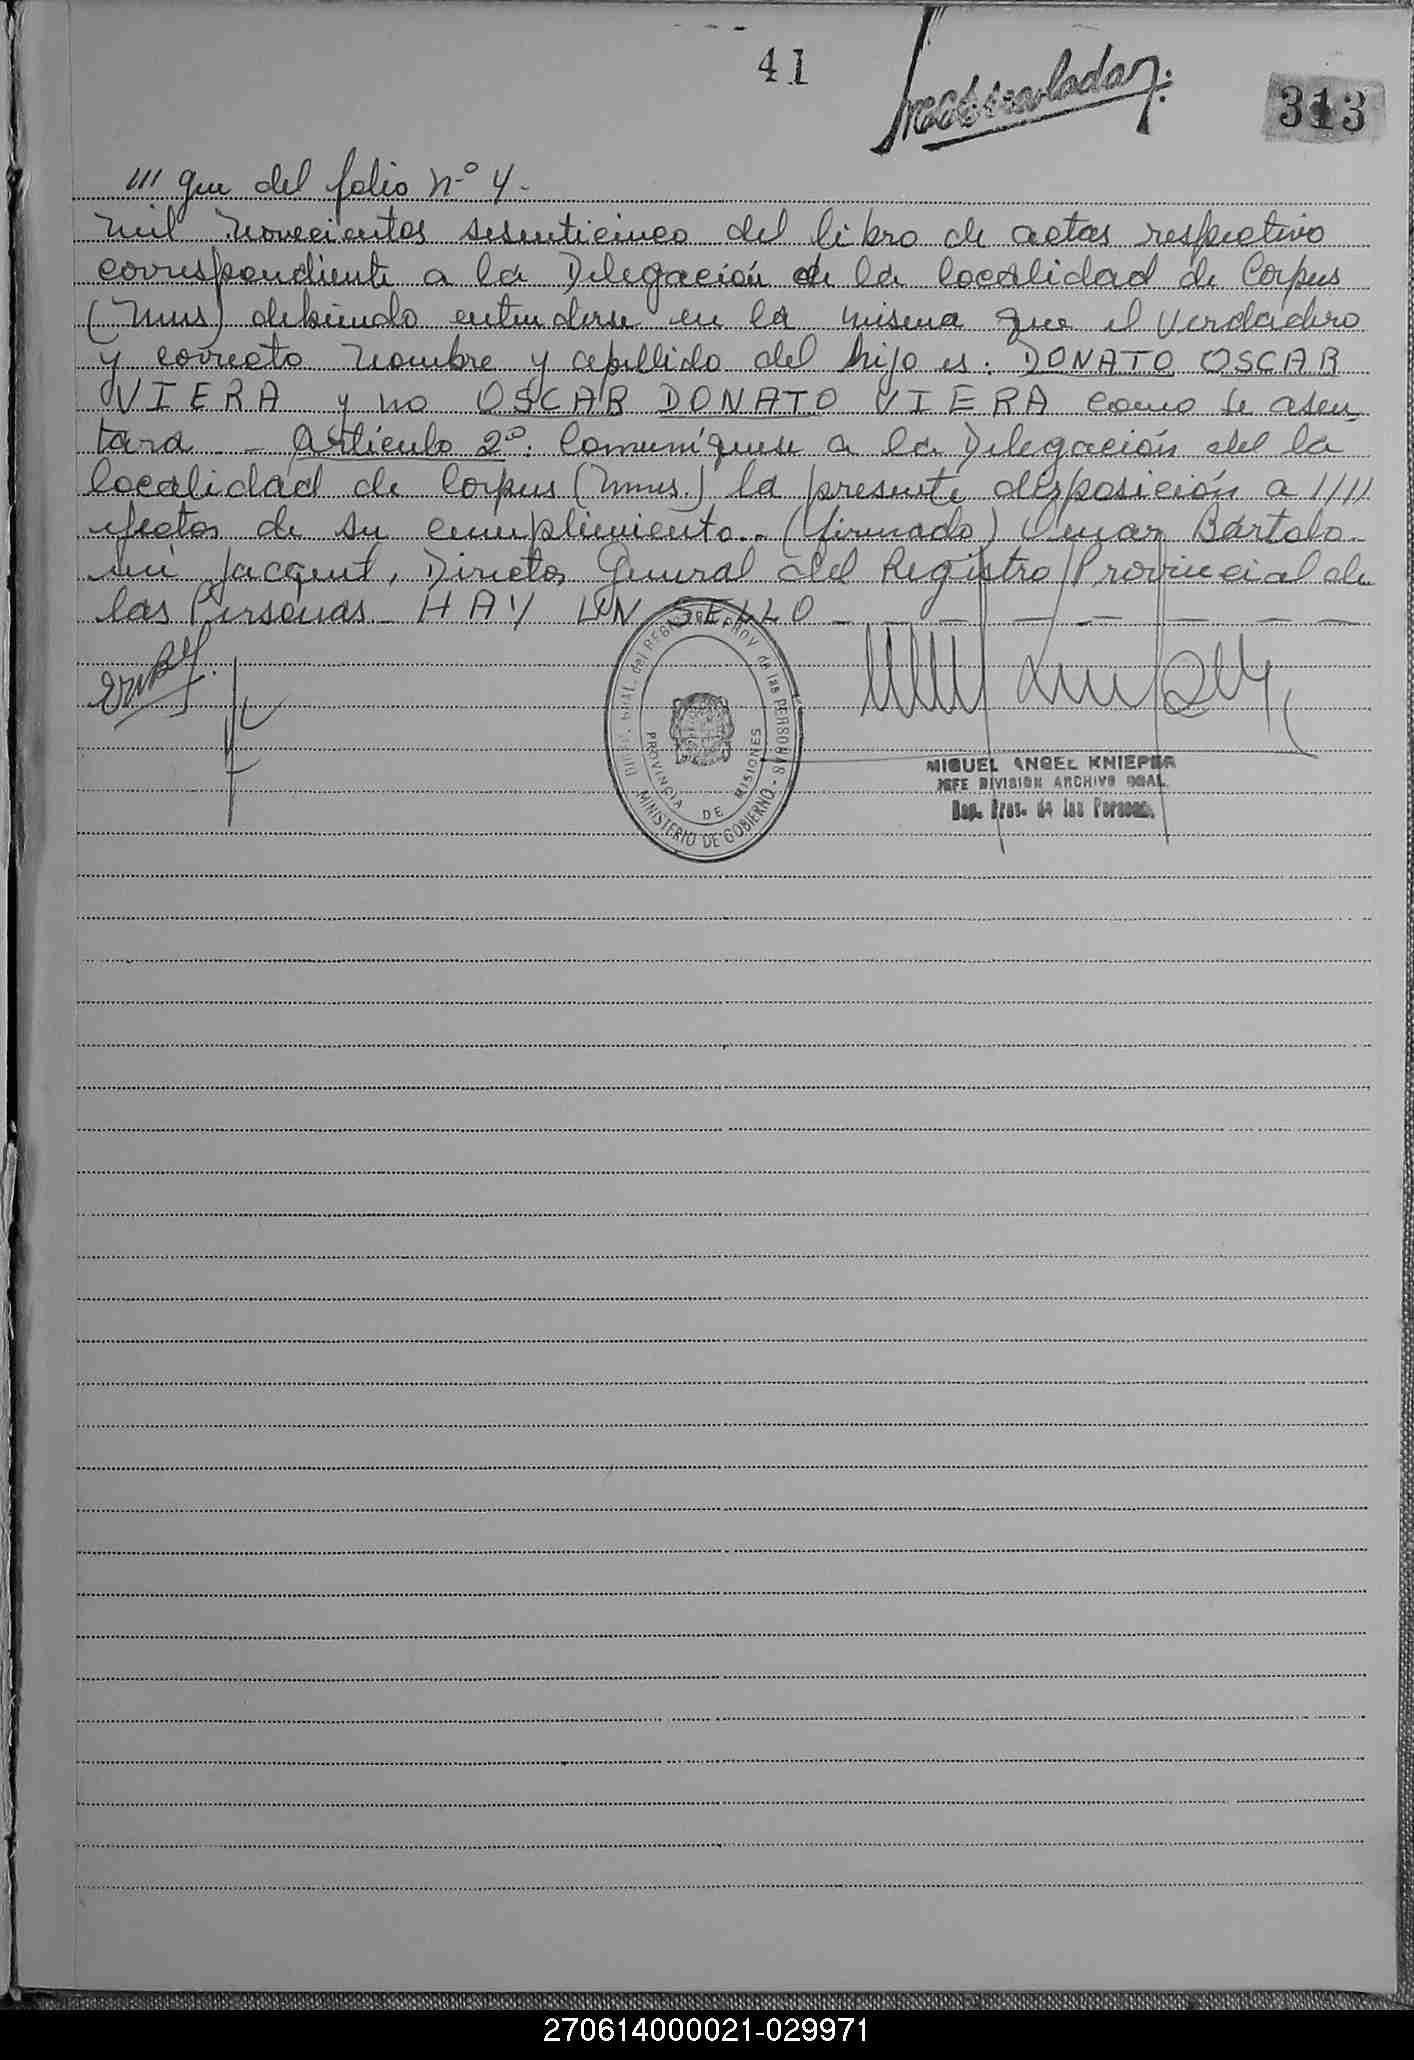 41
313
/// que del folio Nº 4.
mil novecientos sesenticinco del libro de actas respectivo
correspondiente a la Delegación de la localidad de Corpus
(Mnes) debiendo entenderse en la misma que el verdadero
y correcto nombre y apellido del hijo es: DONATO OSCAR
VIERA y no OSCAR DONATO VIERA como se asen
tara - Artículo 2º: Comuníquese a la Delegación del la
localidad de Corpus (Mnes.) la presente disposición a ////
efectos de su cumplimiento.. (firmado) Omar Bártolo-
mé Jacquet, Director General del Registro Provincial de
las Personas - HAY UN SELLO - - - - - - - -
DIREC. GRAL. del REG. PROV. de las PERSONAS -
MINISTERIO DE GOBIERNO
PROVINCIA DE MISIONES
MIGUEL ANGEL KNIEPER
JEFE DIVISION ARCHIVO GRAL.
Reg. Prov. de las Personas
270614000021-029971